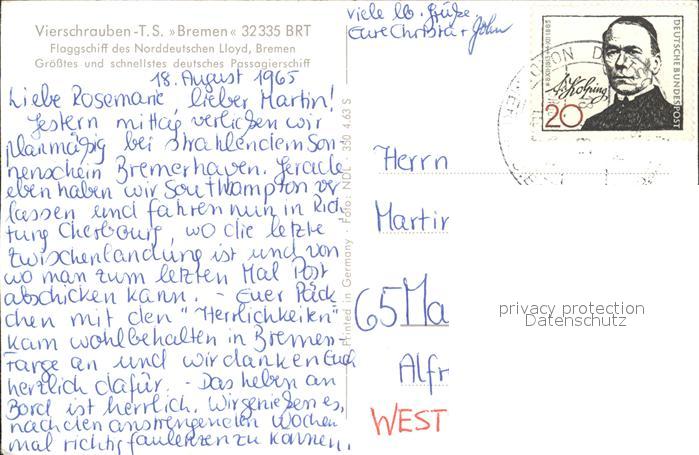 Vierschrauben-T.S. »Bremen« 32335 BRT
Flaggschiff des Norddeutschen Lloyd, Bremen
Größtes und schnellstes deutsches Passagierschiff
18. August 1965
Liebe Rosemarie, lieber Martin!
Gestern mittag verließen wir
planmäßig bei strahlendem Son-
nenschein Bremerhaven. Gerade
eben haben wir Southampton ver
lassen und fahren nun in Rich
tung Cherbourg, wo die letzte
Zwischenlandung ist und von
wo man zum letzten Mal Post
abschicken kann. - Euer Päck
chen mit den "Herrlichkeiten"
kam wohlbehalten in Bremen-
Farge an und wir danken Euch
herzlich dafür. - Das Leben an
Bord ist herrlich. Wir genießen es,
nach den anstrengenden Wochen
mal richtig faulenzen zu können.
viele lb. Grüße
Eure Christa + John
Printed in Germany · Foto: NDL 350 4.63 S
DEUTSCHE BUNDESPOST
A. Kolping
20
Herrn
Martin
65 Ma
Alfr
WEST
privacy protection
Datenschutz